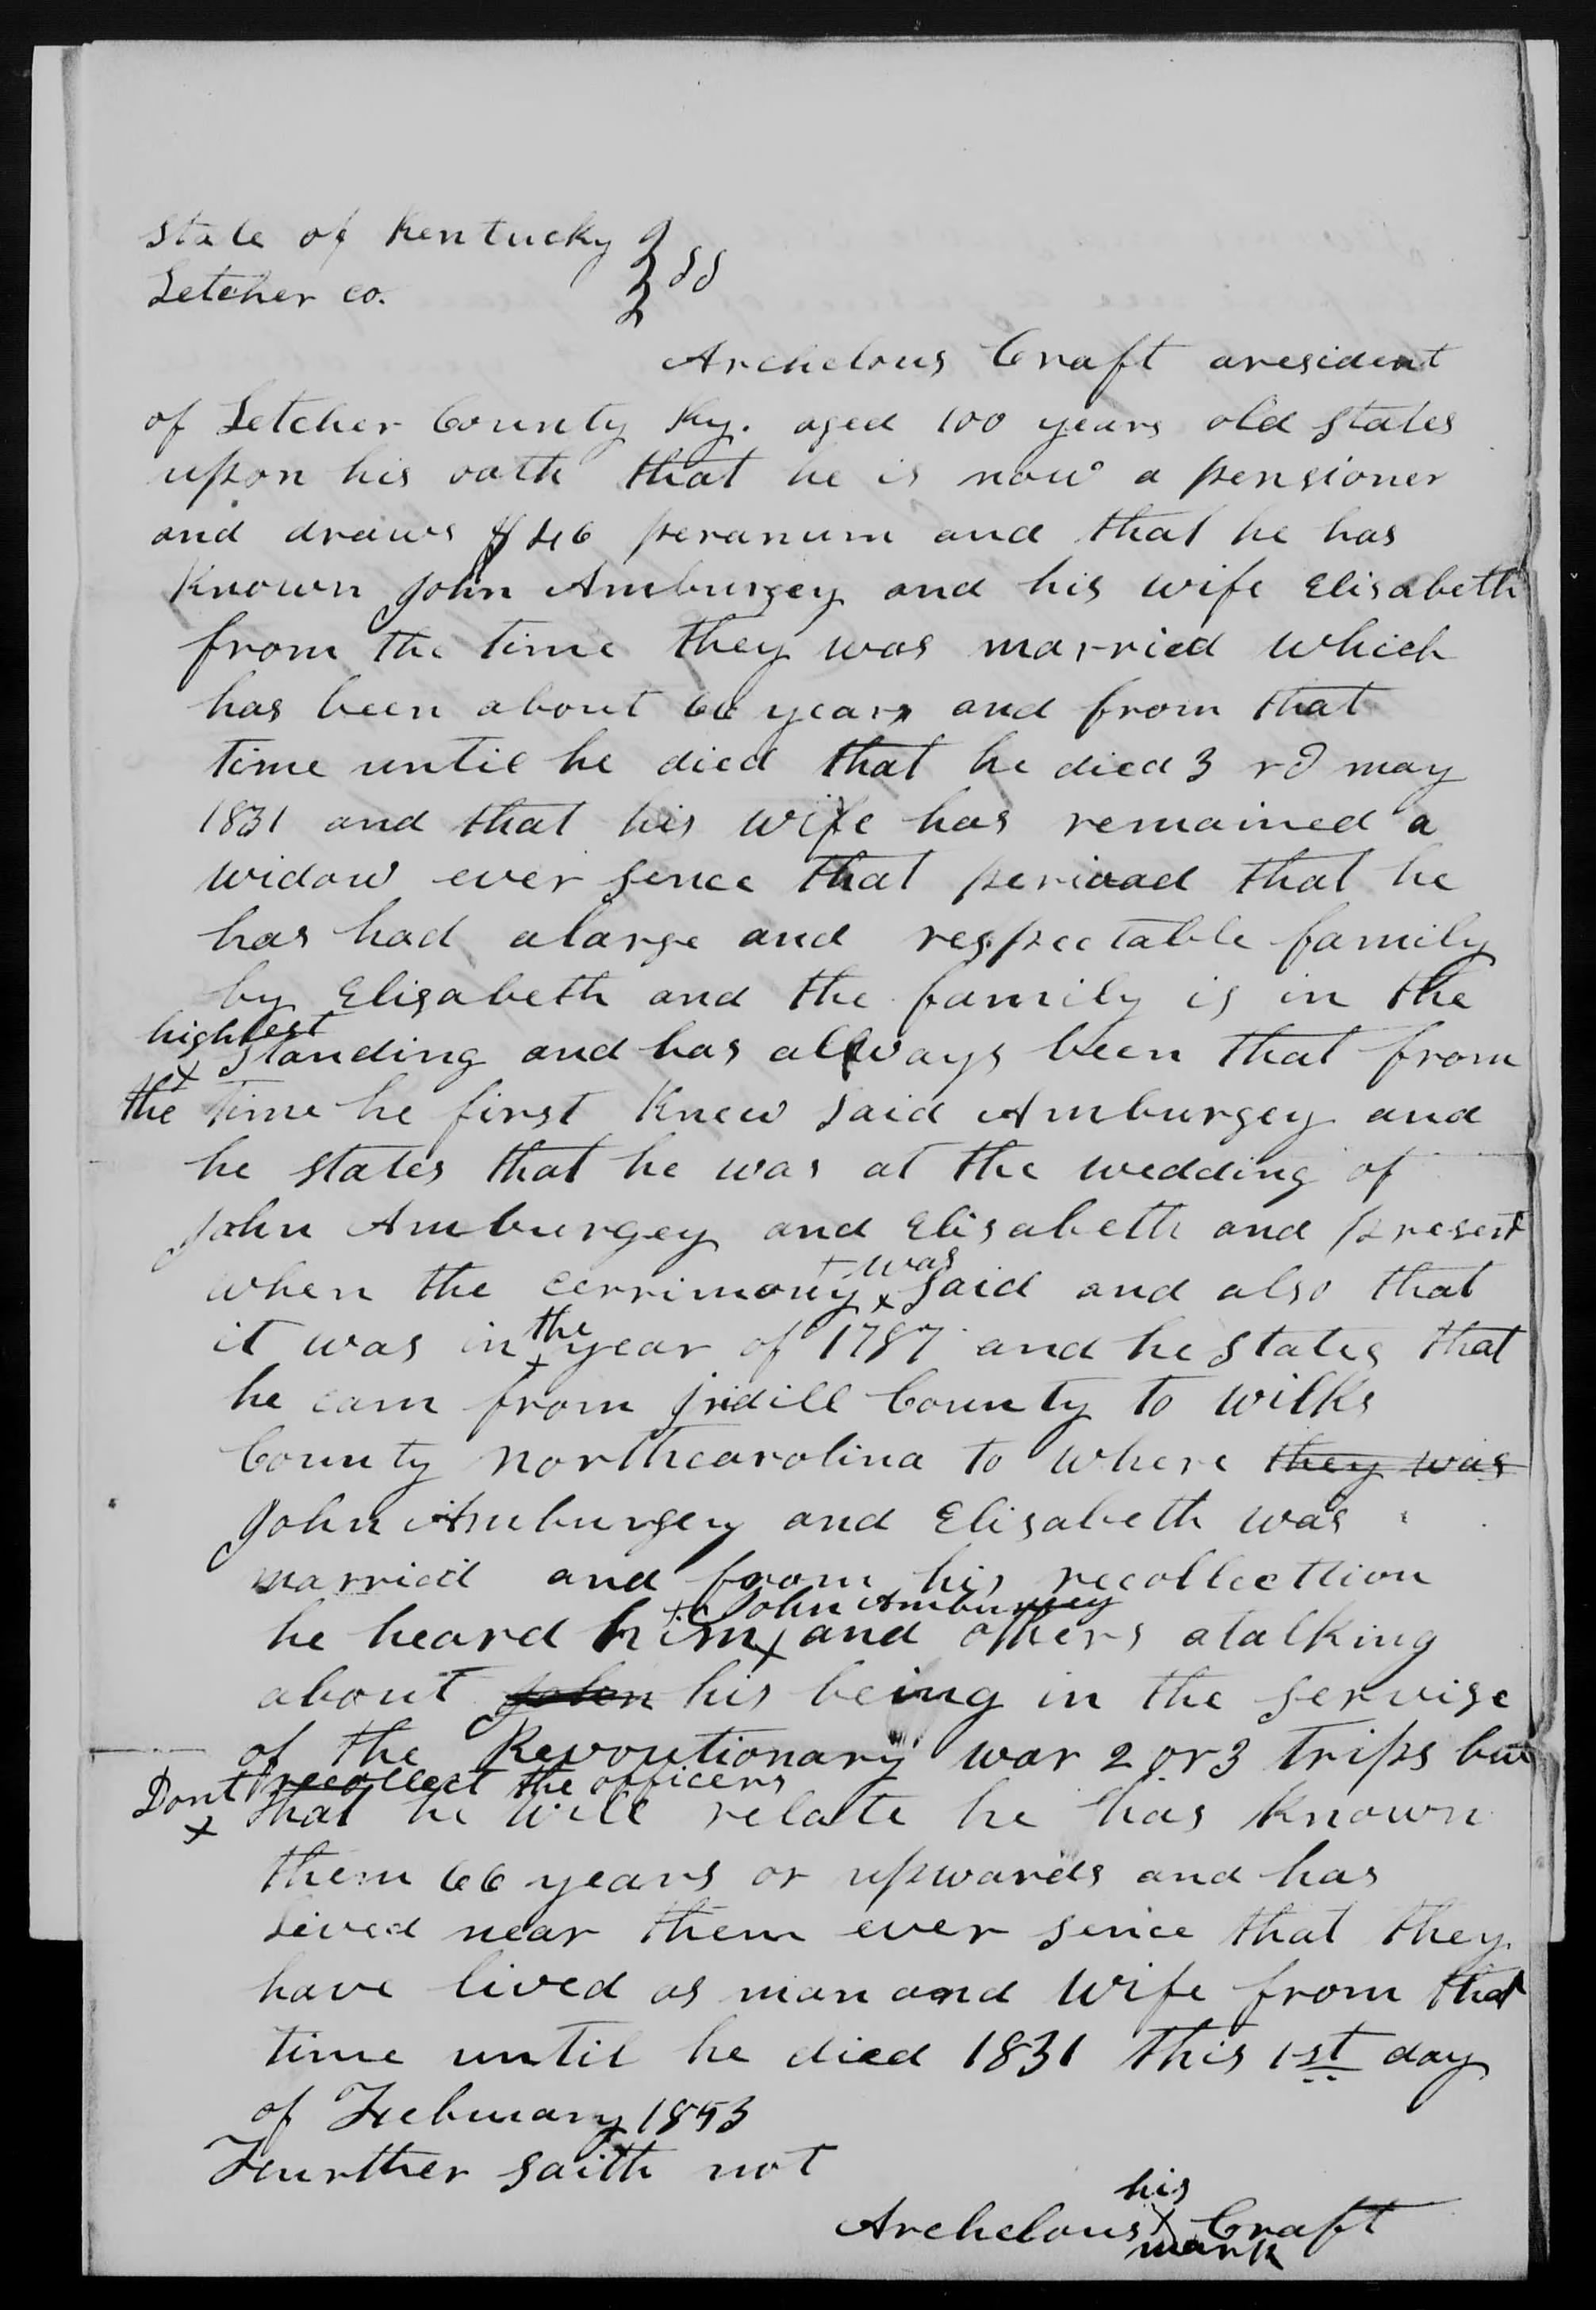 State of Kentucky } ss
Letcher co.
Archelous Craft aresident
of Letcher County Ky. aged 100 years old states
upon his oath that he is now a pensioner
and draws $46 peranum and that he has
Known John Amburgey and his wife Elisabeth
from the time they was married which
has been about 66 years and from that
time until he died that he died 3 rd may
1831 and that his wife has remained a
widow ever sence that perioad that he
has had alarge and respectable family
by Elisabeth and the family is in the
highest
x standing and has allways been that from
the time he first Knew said Amburgey and
he states that he was at the wedding of
John Amburgey and Elisabeth and present
was
when the cerrimony x said and also that
the
it was in x year of 1787 and he states that
he cam from jridill County to Wilks
County northcarolina to where they was
John Amburgey and Elisabeth was
married and from his recollecttion
John Amburgey
he heard him x and others atalking
about John his being in the servise
of the Revoutionary war 2 or 3 trips but
Dont recollect the officers
x that he will relate he has known
them 66 years or upwards and has
Lived near them ever senice that they
have lived as man and wife from that
time until he died 1831 this 1st day
of Febuary 1853
Further saith not
his
Archelous x Craft
mark